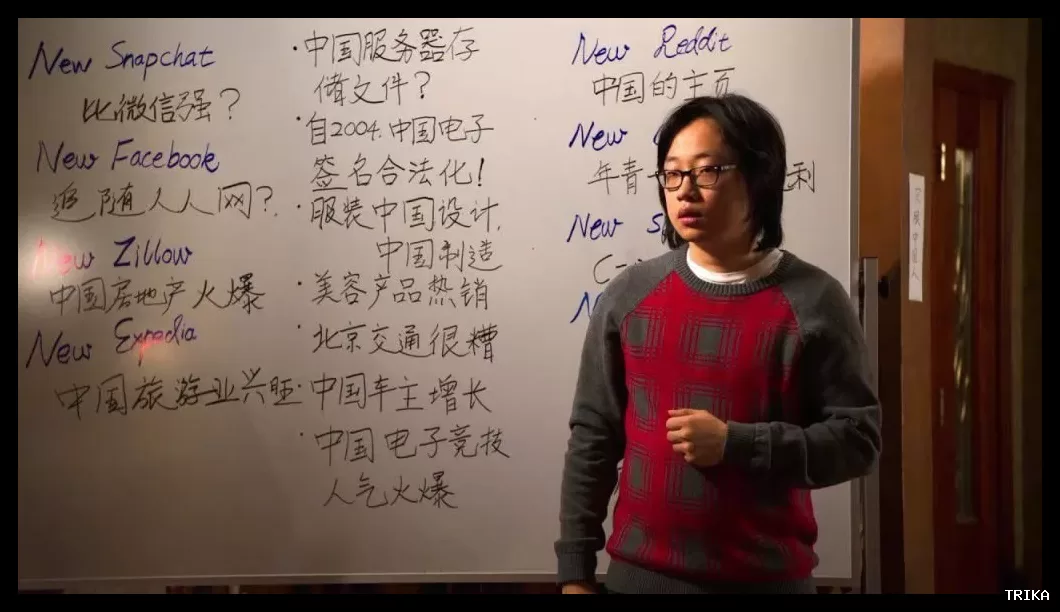 New Snapchat
比微信强？
New Facebook
追随人人网？
New Zillow
中国房地产火爆
New Expedia
中国旅游业兴旺
·中国服务器存
储文件？
·自2004.中国电子
签名合法化！
·服装中国设计，
中国制造
·美容产品热销
·北京交通很糟
·中国车主增长
·中国电子竞技
人气火爆
New Reddit
中国的主页
New
年青 利
New S
C
N
中国人
TRIKA